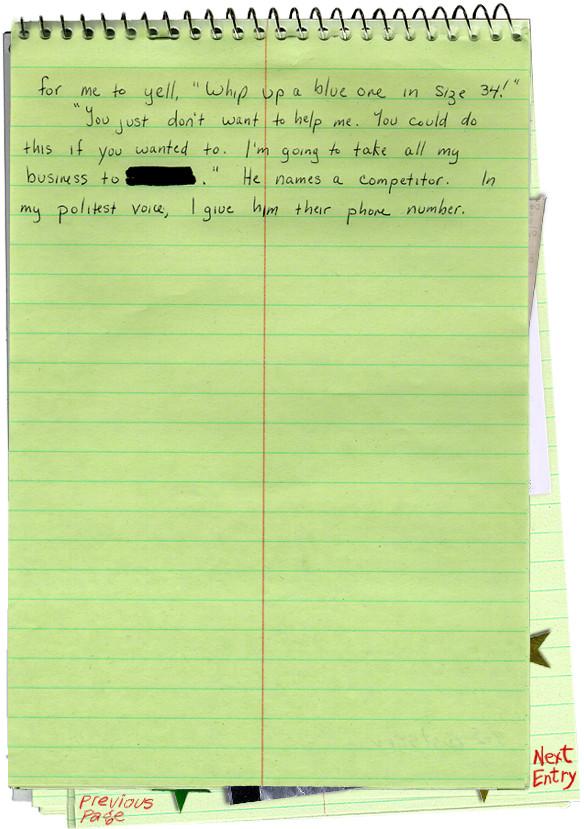 for me to yell, "Whip up a blue one in size 34!"
"You just don't want to help me. You could do
this if you wanted to. I'm going to take all my
business to ." He names a competitor. In
my politest voice, I give him their phone number.
Next
Entry
Previous
Page